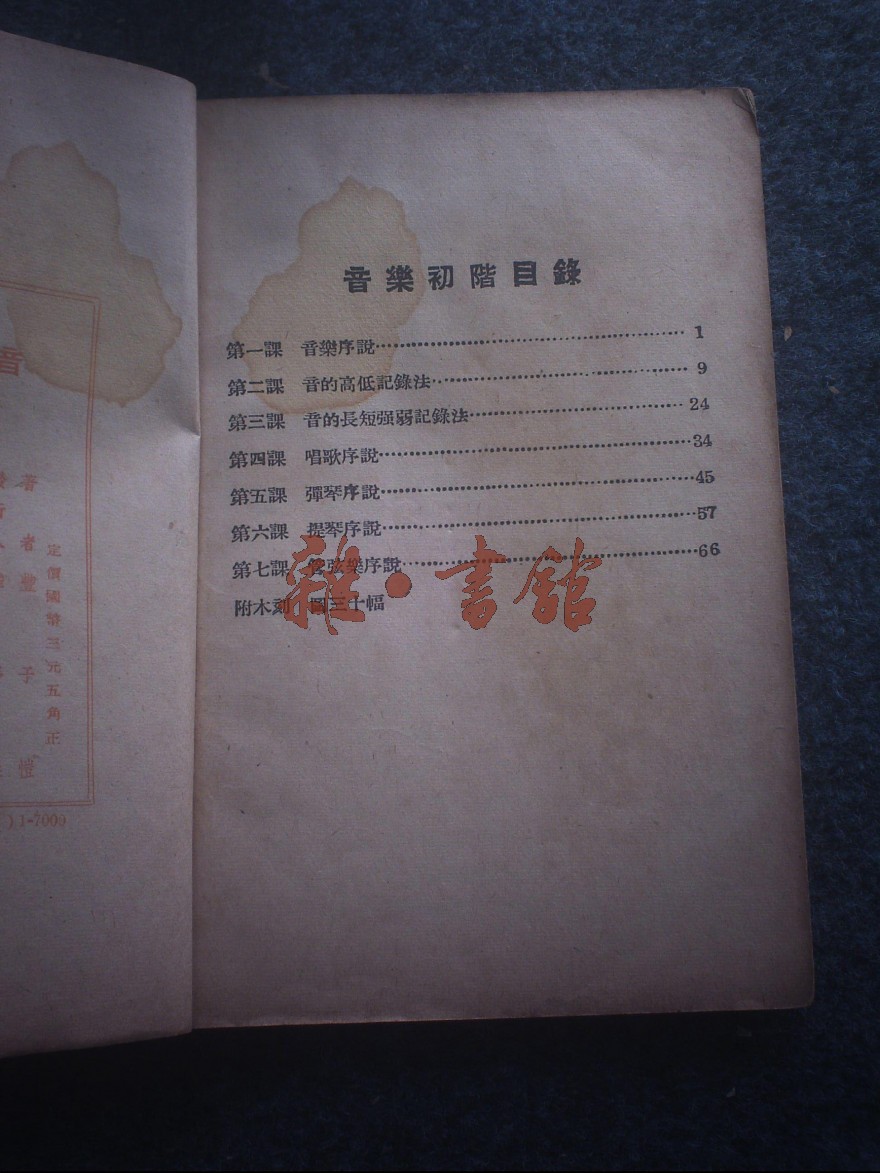 音樂初階目錄
第一課 音樂序說……1
第二課 音的高低記錄法……9
第三課 音的長短强弱記錄法……24
第四課 唱歌序說……34
第五課 彈琴序說……45
第六課 提琴序說……57
第七課 管弦樂序說……66
附木刻 圖三十幅
雜·書館
音
著 者 豐 子 愷
定價國幣三元五角正
)1-7000